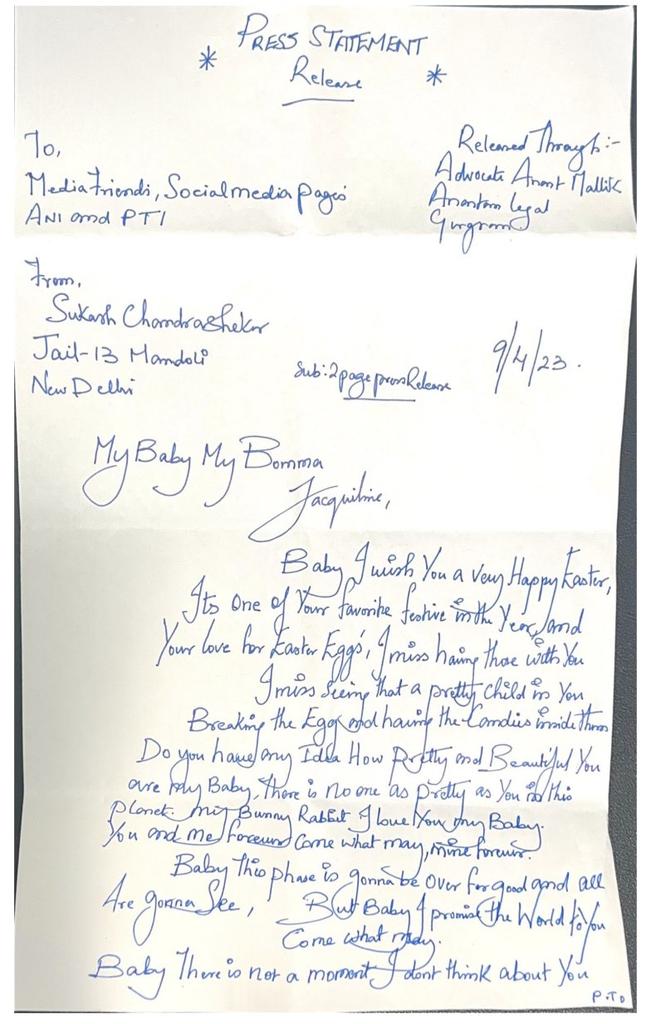 PRESS STATEMENT
* Release *
To,
Media Friends, Social media pages
ANI and PTI
Released Through:-
Advocate Anant Mallik
Anantam Legal
Gurgram
From,
Sukash Chandrashekar
Jail-13 Mandoli
New Delhi
Sub: 2 page press Release
9/4/23.
My Baby My Bomma
Jacquiline,
Baby I wish You a very Happy Easter,
Its One of Your favorite festive in the Year, and
Your love for Easter Eggs', I miss having those with You
I miss seeing that a pretty child in You
Breaking the Eggs and having the Candies inside them
Do you have any Idea How Pretty and Beautiful You
are My Baby, there is no one as pretty as You in this
Planet. My Bunny Rabbit I love You, my Baby.
You and me forever Come what may, mine forever.
Baby this phase is gonna be Over for good and all
Are gonna See, But Baby I promise the World to You
Come what may.
Baby There is not a moment I dont think about You
P.TO